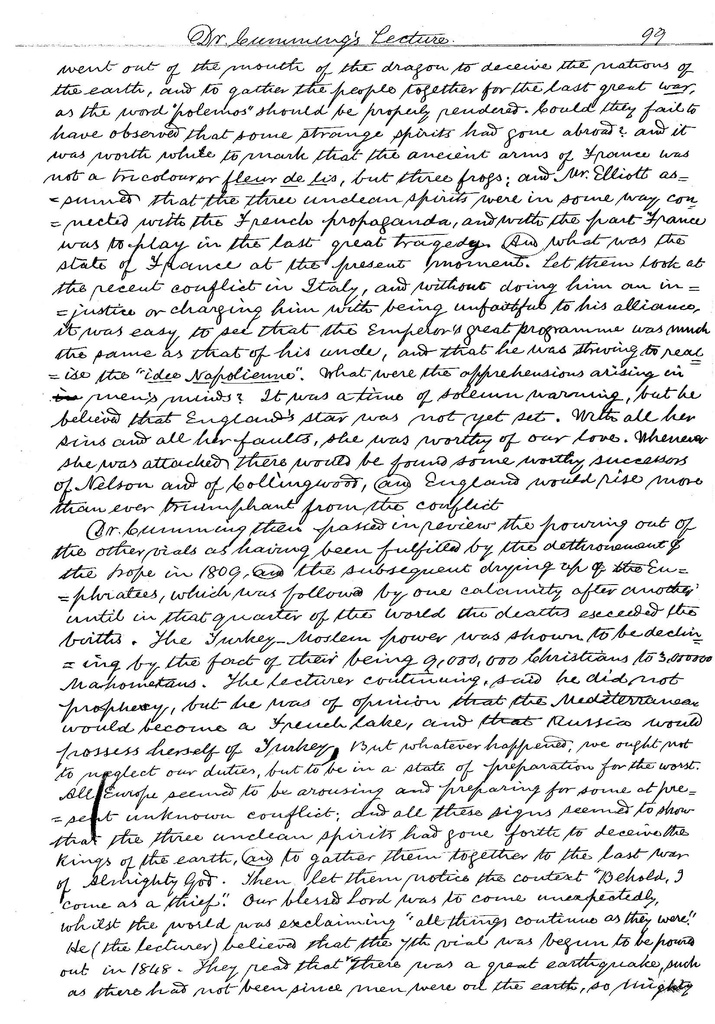 Dr. Cumming's Lecture. 99
went out of the mouth of the dragon to deceive the nations of
the earth, and to gather the people together for the last great war,
as the word "polemos" should be properly rendered. Could they fail to
have observed that some strange spirits had gone abroad? and it
was worth while to mark that the ancient arms of France was
not a tricolour or fleur de lis, but three frogs; and Mr. Elliott as=
=sumed that the three unclean spirits were in some way con
=nected with the French propaganda, and with the part France
was to play in the last great tragedy. And what was the
state of France at the present moment. Let them look at
the recent conflict in Italy, and without doing him an in=
=justice or charging him with being unfaithful to his alliance,
it was easy to see that the Emperor's great programme was much
the same as that of his uncle, and that he was striving to real
=ise the "idee Napolienne". What were the apprehensions arising in
in men's minds? It was a time of solemn warning, but he
believed that England's star was not yet set. With all her
sins and all her faults, she was worthy of our love. Whenever
she was attacked there would be found some worthy successors
of Nelson and of Collingwood, and England would rise more
than ever triumphant from the conflict
Dr. Cumming then passed in review the pouring out of
the other vials as having been fulfilled by the dethronement of
the Pope in 1809, and the subsequent drying up of the Eu=
=phratees, which was followed by one calamity after another
until in that quarter of the world the deaths exceeded the
births. The Turkey-Moslem power was shown to be declin=
=ing by the fact of their being 9,000,000 Christians to 3,000000
Mahometans. The lecturer continuing, said he did not
prophecy, but he was of opinion that the Mediterranean
would become a French lake, and that Russia would
possess herself of Turkey. But whatever happened, we ought not
to neglect our duties, but to be in a state of preparation for the worst.
All Europe seemed to be arousing and preparing for some at pre=
=sent unknown conflict; did all these signs seemed to show
that the three unclean spirits had gone forth to deceive the
Kings of the earth, and to gather them together to the last war
of Almighty God. Then let them notice the context "Behold, I
come as a thief". Our blessed Lord was to come unexpectedly,
whilst the world was exclaiming "all things continue as they were."
He (the lecturer) believed that the 7th vial was begun to be poured
out in 1848. They read that "there was a great earthquake, such
as there had not been since men were on the earth, so mighty